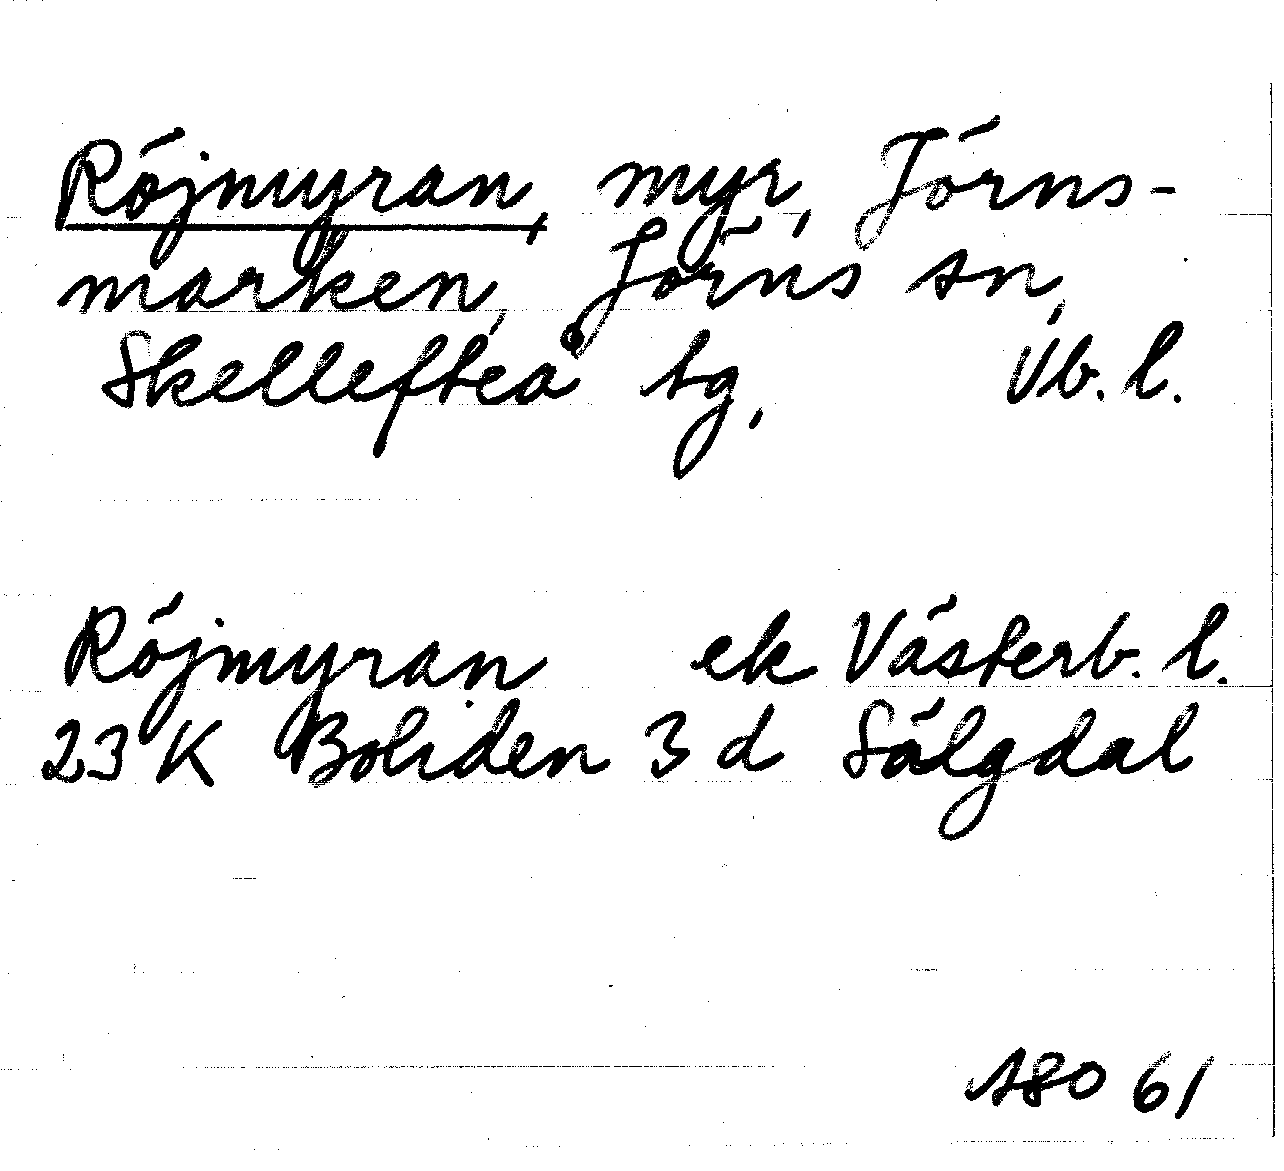 Röjmyran, myr, Jörns-
marken, Jörns sn,
Skellefteå tg, Vb. l.
Röjmyran ek Västerb. l.
23 K Boliden 3 d Sälgdal
ASO 61